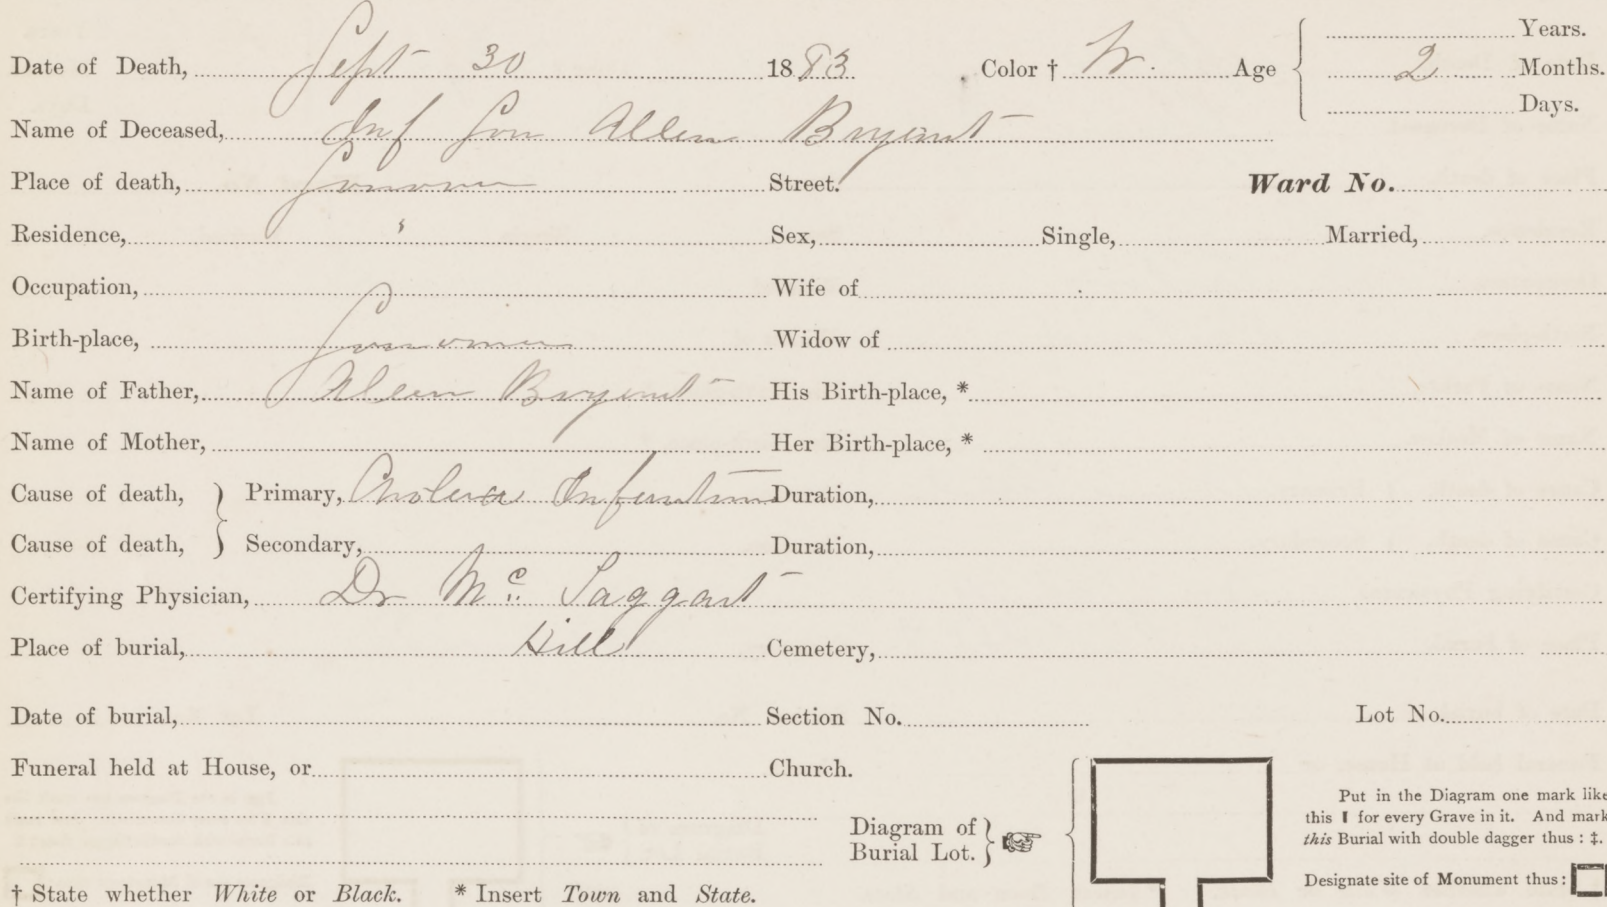 Years.
Date of Death, Sept 30 1883 Color † W. Age 2 Months.
Days.
Name of Deceased, Inf Son Allen Bryant
Place of death, Sonoma Street. Ward No.
Residence, " Sex, Single, Married,
Occupation, Wife of
Birth-place, Sonoma Widow of
Name of Father, Allen Bryant His Birth-place, *
Name of Mother, Her Birth-place, *
Cause of death, } Primary, Cholera Infantum Duration,
Cause of death, } Secondary, Duration,
Certifying Physician, Dr Mc Taggart
Place of burial, Hill Cemetery,
Date of burial, Section No. Lot No.
Funeral held at House, or Church.
Put in the Diagram one mark like
this ❙ for every Grave in it. And mark
this Burial with double dagger thus : ‡.
Diagram of
Burial Lot.
Designate site of Monument thus:
† State whether White or Black. * Insert Town and State.